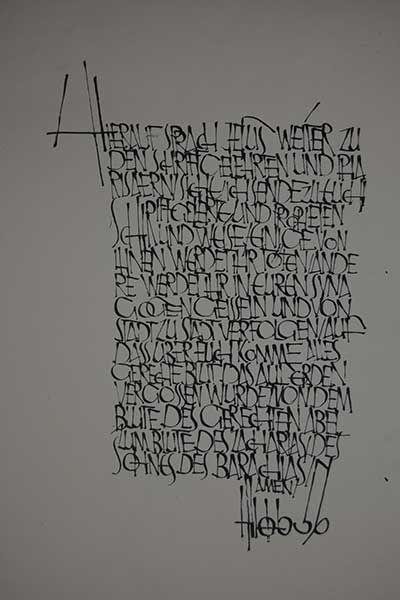 HIERAUF SPRACH JESUS WEITER ZU
DEN SCHRIFTGELEHRTEN UND PHA
RISÄERN SIEHE ICH SENDE ZU EUCH
SCHRIFTGELEHRTE UND PROPHETEN
UND WEISE EINIGE VON
IHNEN WERDET IHR TÖTEN ANDE
RE WERDET IHR IN EUREN SYNA
GOGEN GEISSELN UND VON
STADT ZU STADT VERFOLGEN AUF
DASS ÜBER EUCH KOMME ALLES
GERECHTE BLUT DAS AUF ERDEN
VERGOSSEN WURDE VON DEM
BLUTE DES GERECHTEN ABEL
ZUM BLUTE DES ZACHARIAS DES
SOHNES DES BARACHIAS
AMEN